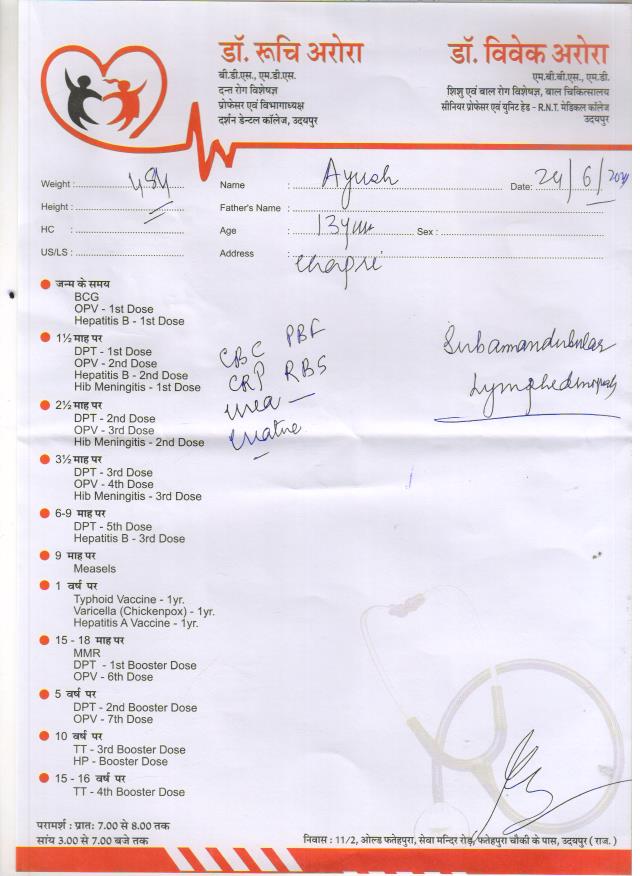 डॉ. रूचि अरोरा
बी.डी.एस., एम.डी.एस.
दन्त रोग विशेषज्ञ
प्रोफेसर एवं विभागाध्यक्ष
दर्शन डेन्टल कॉलेज, उदयपुर
डॉ. विवेक अरोरा
एम.बी.बी.एस., एम.डी.
शिशु एवं बाल रोग विशेषज्ञ, बाल चिकित्सालय
सीनियर प्रोफेसर एवं युनिट हेड - R.N.T. मेडिकल कॉलेज
उदयपुर
Weight :
Name : Ayush Date: 24/6/
Height :
Father's Name :
HC :
Age : 13 Sex :
US/LS :
Address :
जन्म के समय
BCG
OPV - 1st Dose
Hepatitis B - 1st Dose
1½ माह पर
DPT - 1st Dose
OPV - 2nd Dose
Hepatitis B - 2nd Dose
Hib Meningitis - 1st Dose
2½ माह पर
DPT - 2nd Dose
OPV - 3rd Dose
Hib Meningitis - 2nd Dose
3½ माह पर
DPT - 3rd Dose
OPV - 4th Dose
Hib Meningitis - 3rd Dose
6-9 माह पर
DPT - 5th Dose
Hepatitis B - 3rd Dose
9 माह पर
Measels
1 वर्ष पर
Typhoid Vaccine - 1yr.
Varicella (Chickenpox) - 1yr.
Hepatitis A Vaccine - 1yr.
15 - 18 माह पर
MMR
DPT - 1st Booster Dose
OPV - 6th Dose
5 वर्ष पर
DPT - 2nd Booster Dose
OPV - 7th Dose
10 वर्ष पर
TT - 3rd Booster Dose
HP - Booster Dose
15 - 16 वर्ष पर
TT - 4th Booster Dose
CBC PBF
CRP RBS
urea
परामर्श : प्रात: 7.00 से 8.00 तक
सांय 3.00 से 7.00 बजे तक
निवास : 11/2, ओल्ड फतेहपुरा, सेवा मन्दिर रोड़, फतेहपुरा चौकी के पास, उदयपुर ( राज. )